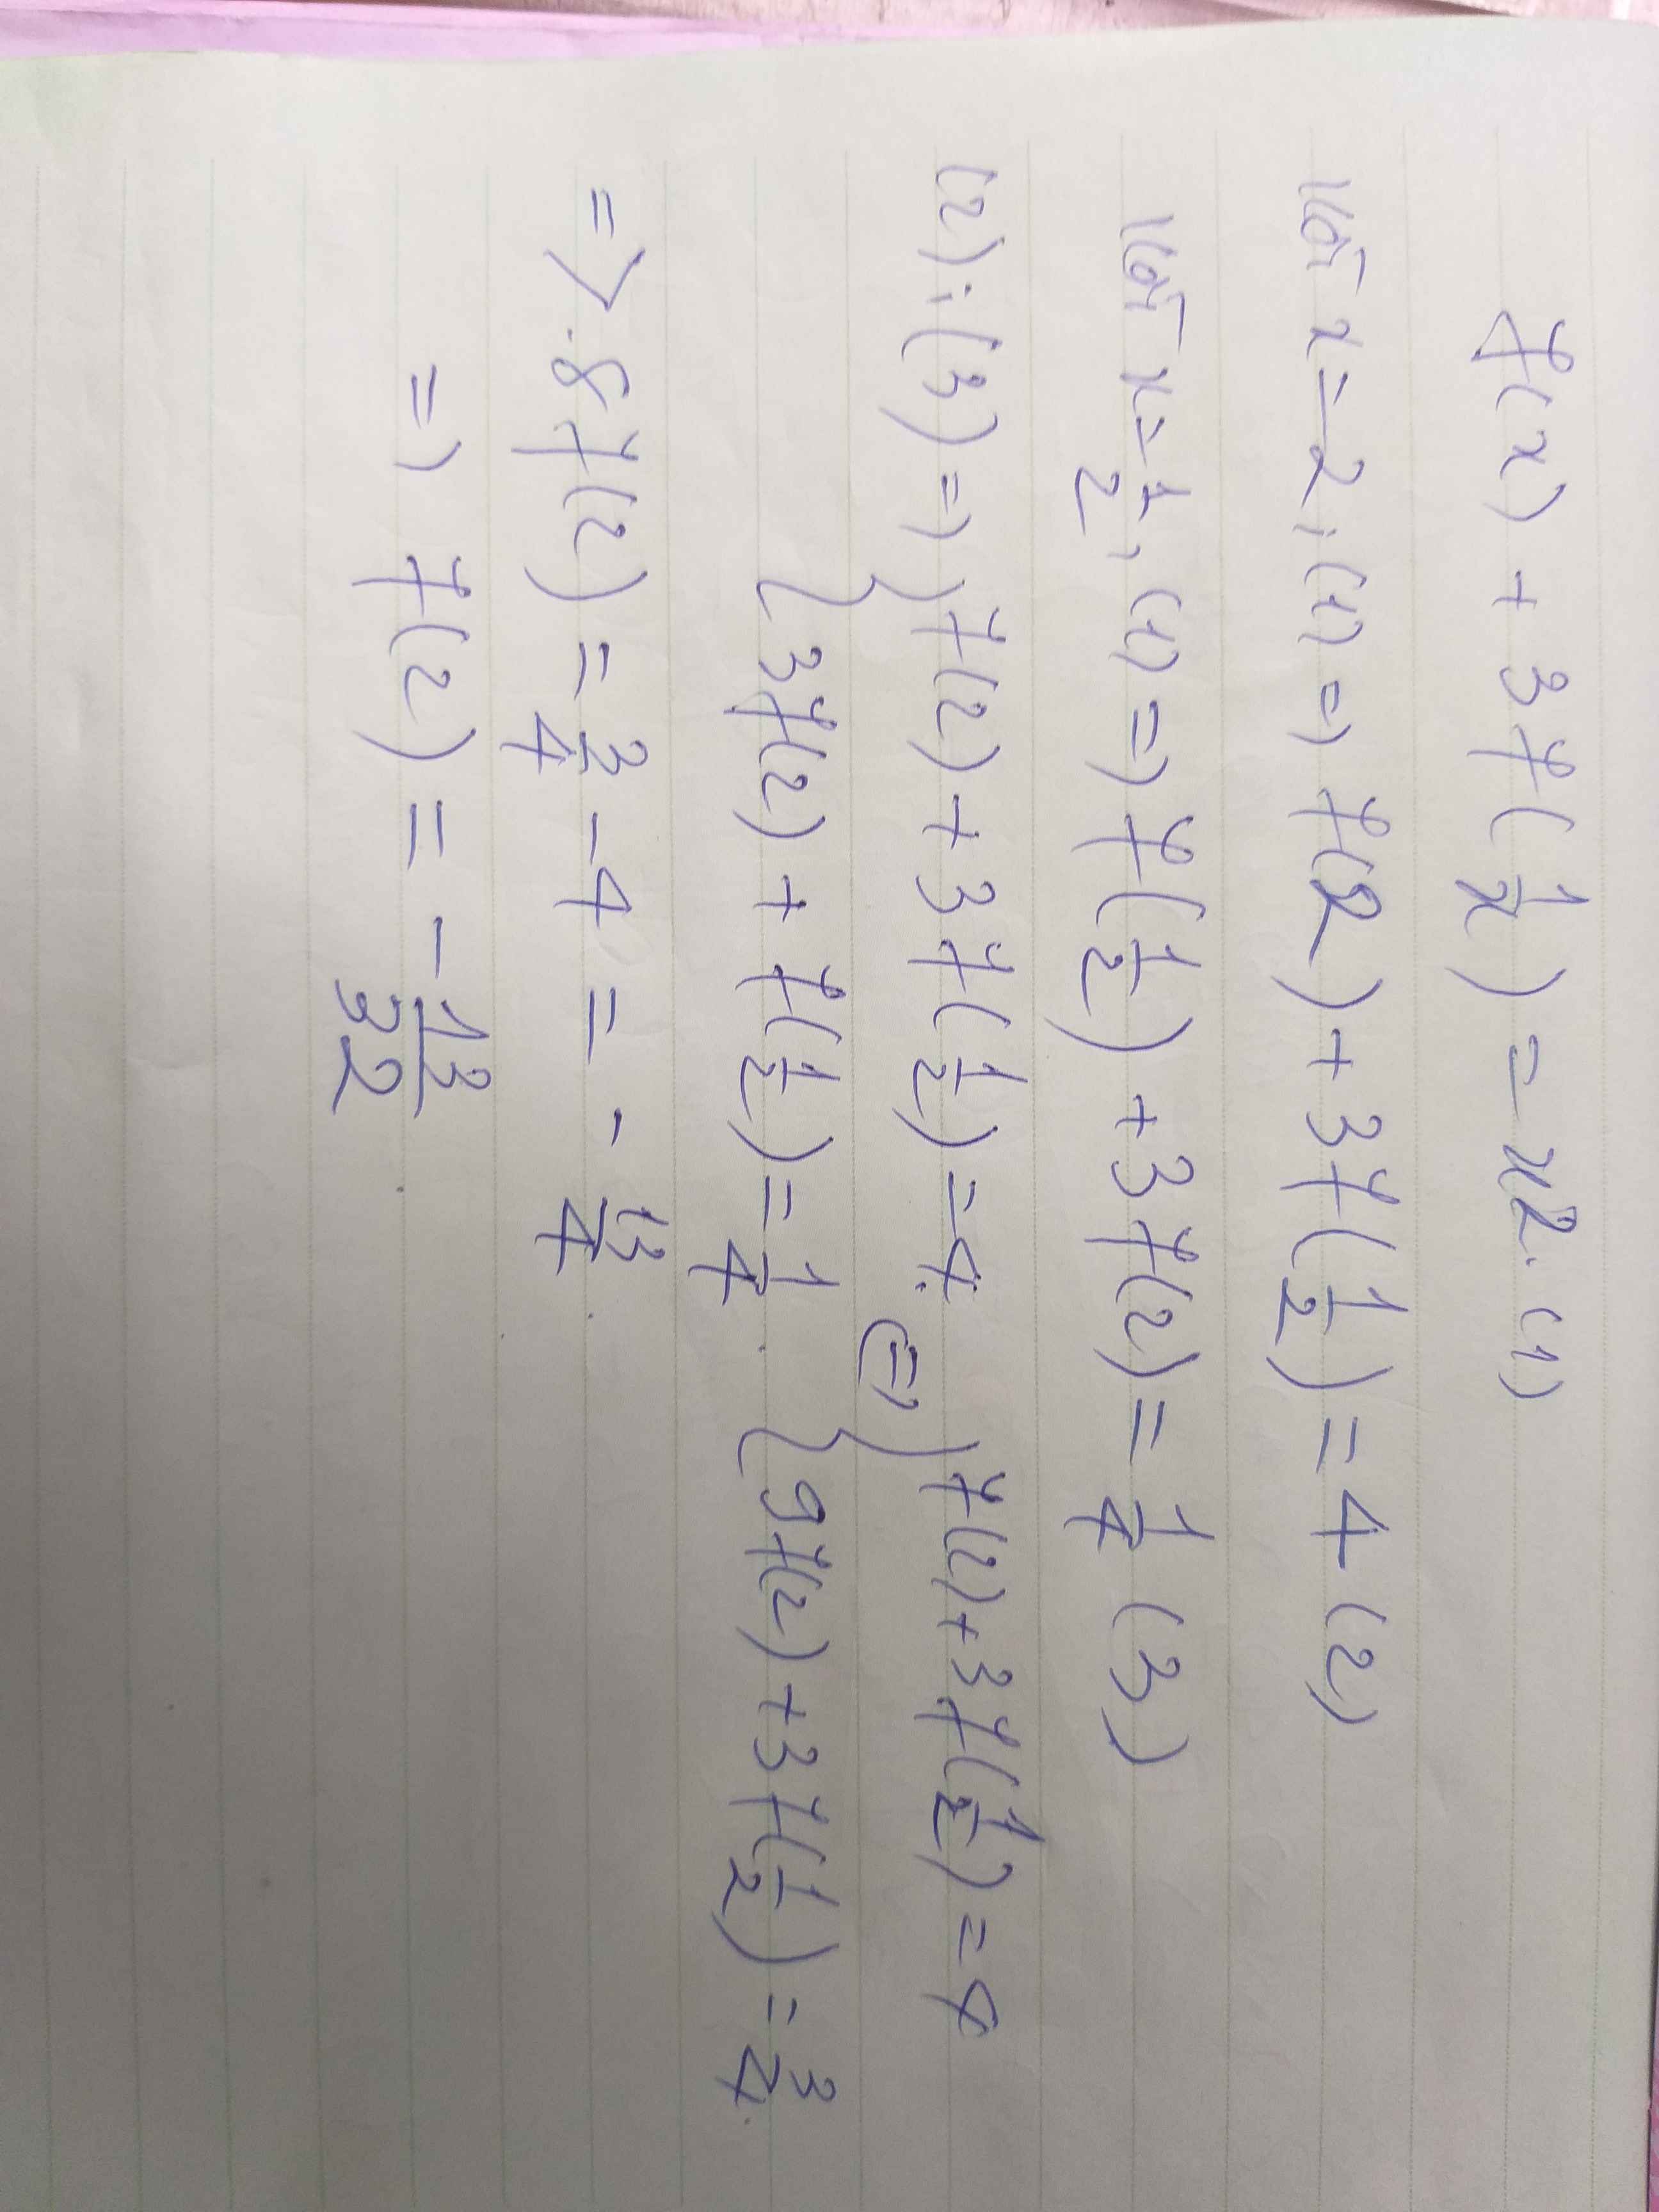 f(x) + 3f(1/x) = x². (1)
Với x = 2, (1) => f(2) + 3f(1/2) = 4 (2)
Với x = 1/2, (1) => f(1/2) + 3f(2) = 1/4 (3)
(2); (3) => { f(2) + 3f(1/2) = 4. <=> { f(2) + 3f(1/2) = 4
3f(2) + f(1/2) = 1/4. 9f(2) + 3f(1/2) = 3/4.
=> 8f(2) = 3/4 - 4 = - 13/4.
=> f(2) = - 13/32.